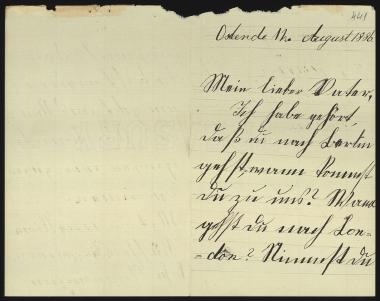 441
Ostende 12. August 1886.
Mein lieber Vater,
Ich habe gehört,
daß du nach Berlin
gehst, wann kommst
du zu uns? Wann
gehst du nach Lon=
=don? Nimmst du